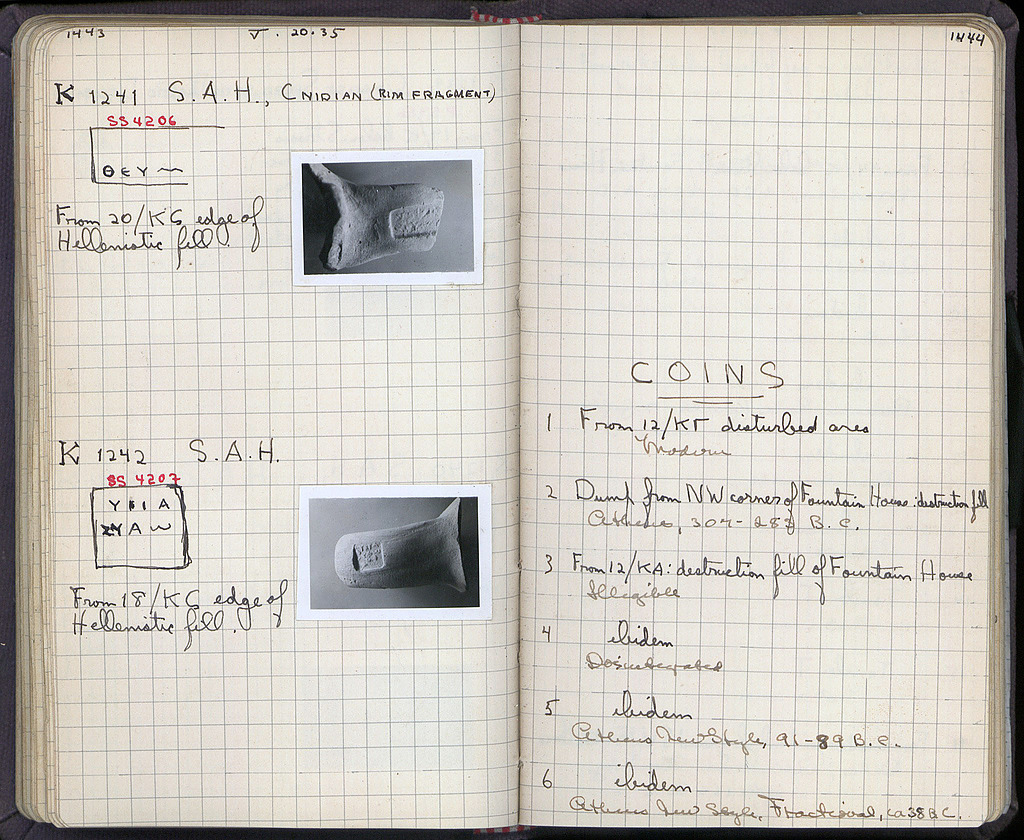 1443
V. 20.35
K 1241 S.A.H., CNIDIAN (RIM FRAGMENT)
SS 4206
Θ Є Υ
From 20/ΚС edge of
Hellenistic fill.
K 1242 S.A.H.
SS 4207
Υ Α
Υ Α
From 18/ΚС edge of
Hellenistic fill.
1444
COINS
1 From 12/ΚΓ disturbed area
Modern
2 Dump from NW corner of Fountain House: destruction fill
Athens, 307-283 B.C.
3 From 12/KA: destruction fill of Fountain House
Illegible
4 ibidem
Disintegrated
5 ibidem
Athens New Style, 91-89 B.C.
6 ibidem
Athens New Style, Fractional, ca 38 B.C.